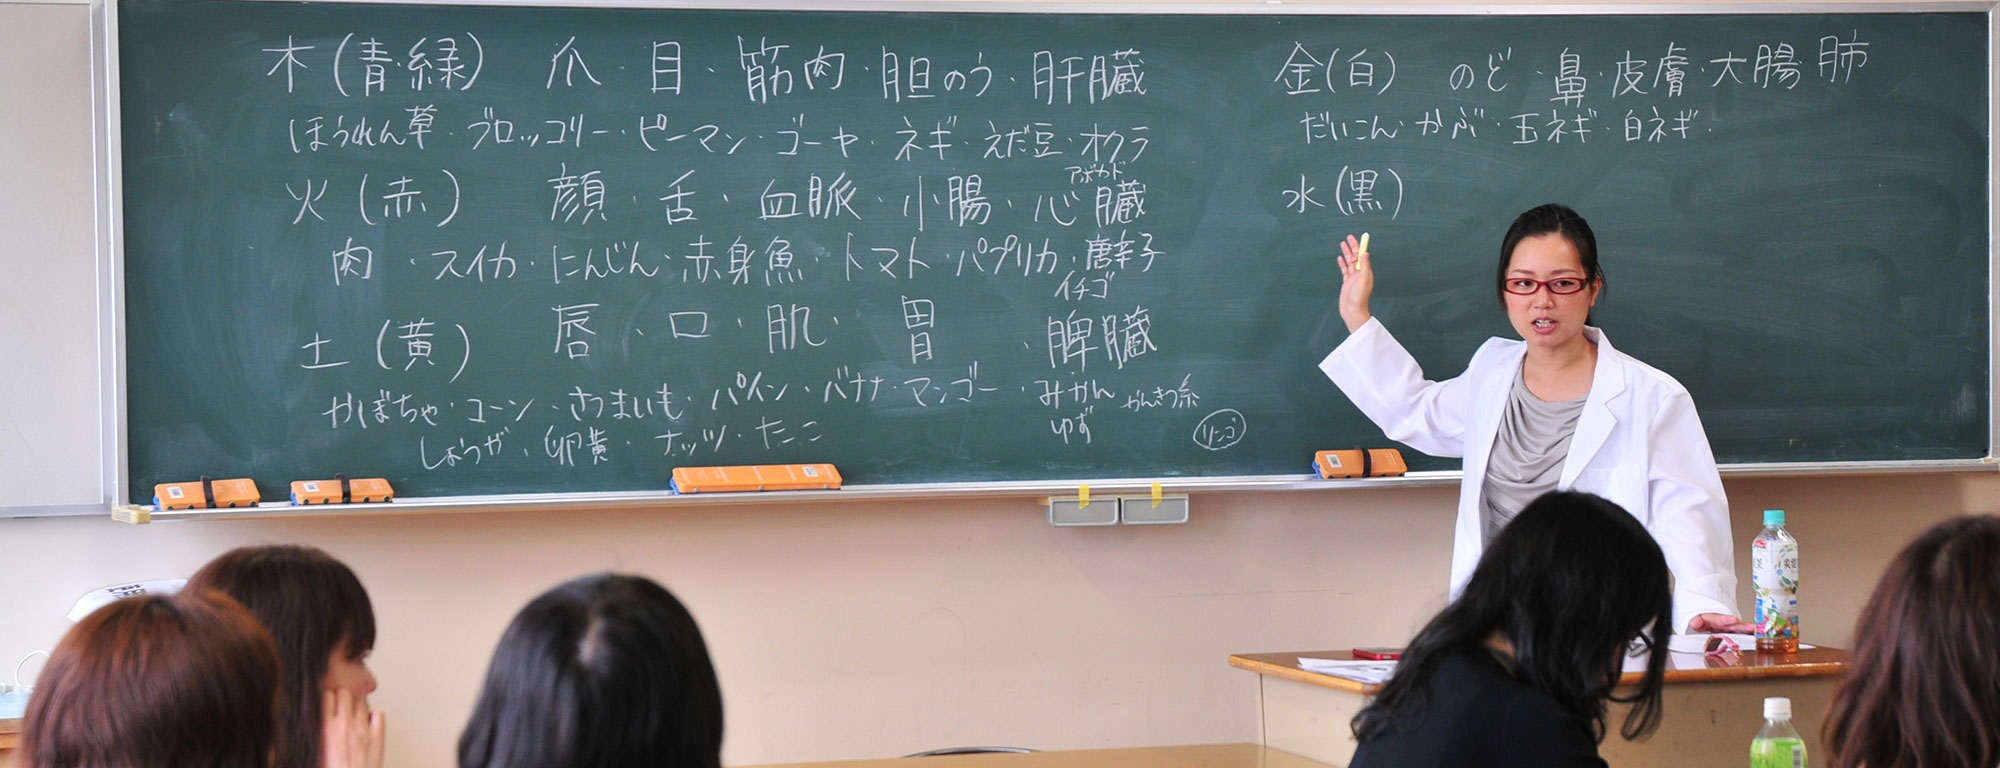 木(青・緑) 爪・目・筋肉・胆のう・肝臓
ほうれん草・ブロッコリー・ピーマン・ゴーヤ・ネギ・えだ豆・オクラ
アボカド
火(赤) 顔・舌・血脈・小腸・心臓
肉・スイカ・にんじん・赤身魚・トマト・パプリカ・唐辛子
イチゴ
土(黄) 唇・口・肌・胃・脾臓
かぼちゃ・コーン・さつまいも・パイン・バナナ・マンゴー・みかん かんきつ系
しょうが・卵黄・ナッツ・たまご ゆず
リンゴ
金(白) のど・鼻・皮膚・大腸 肺
だいこん・かぶ・玉ネギ・白ネギ・
水(黒)